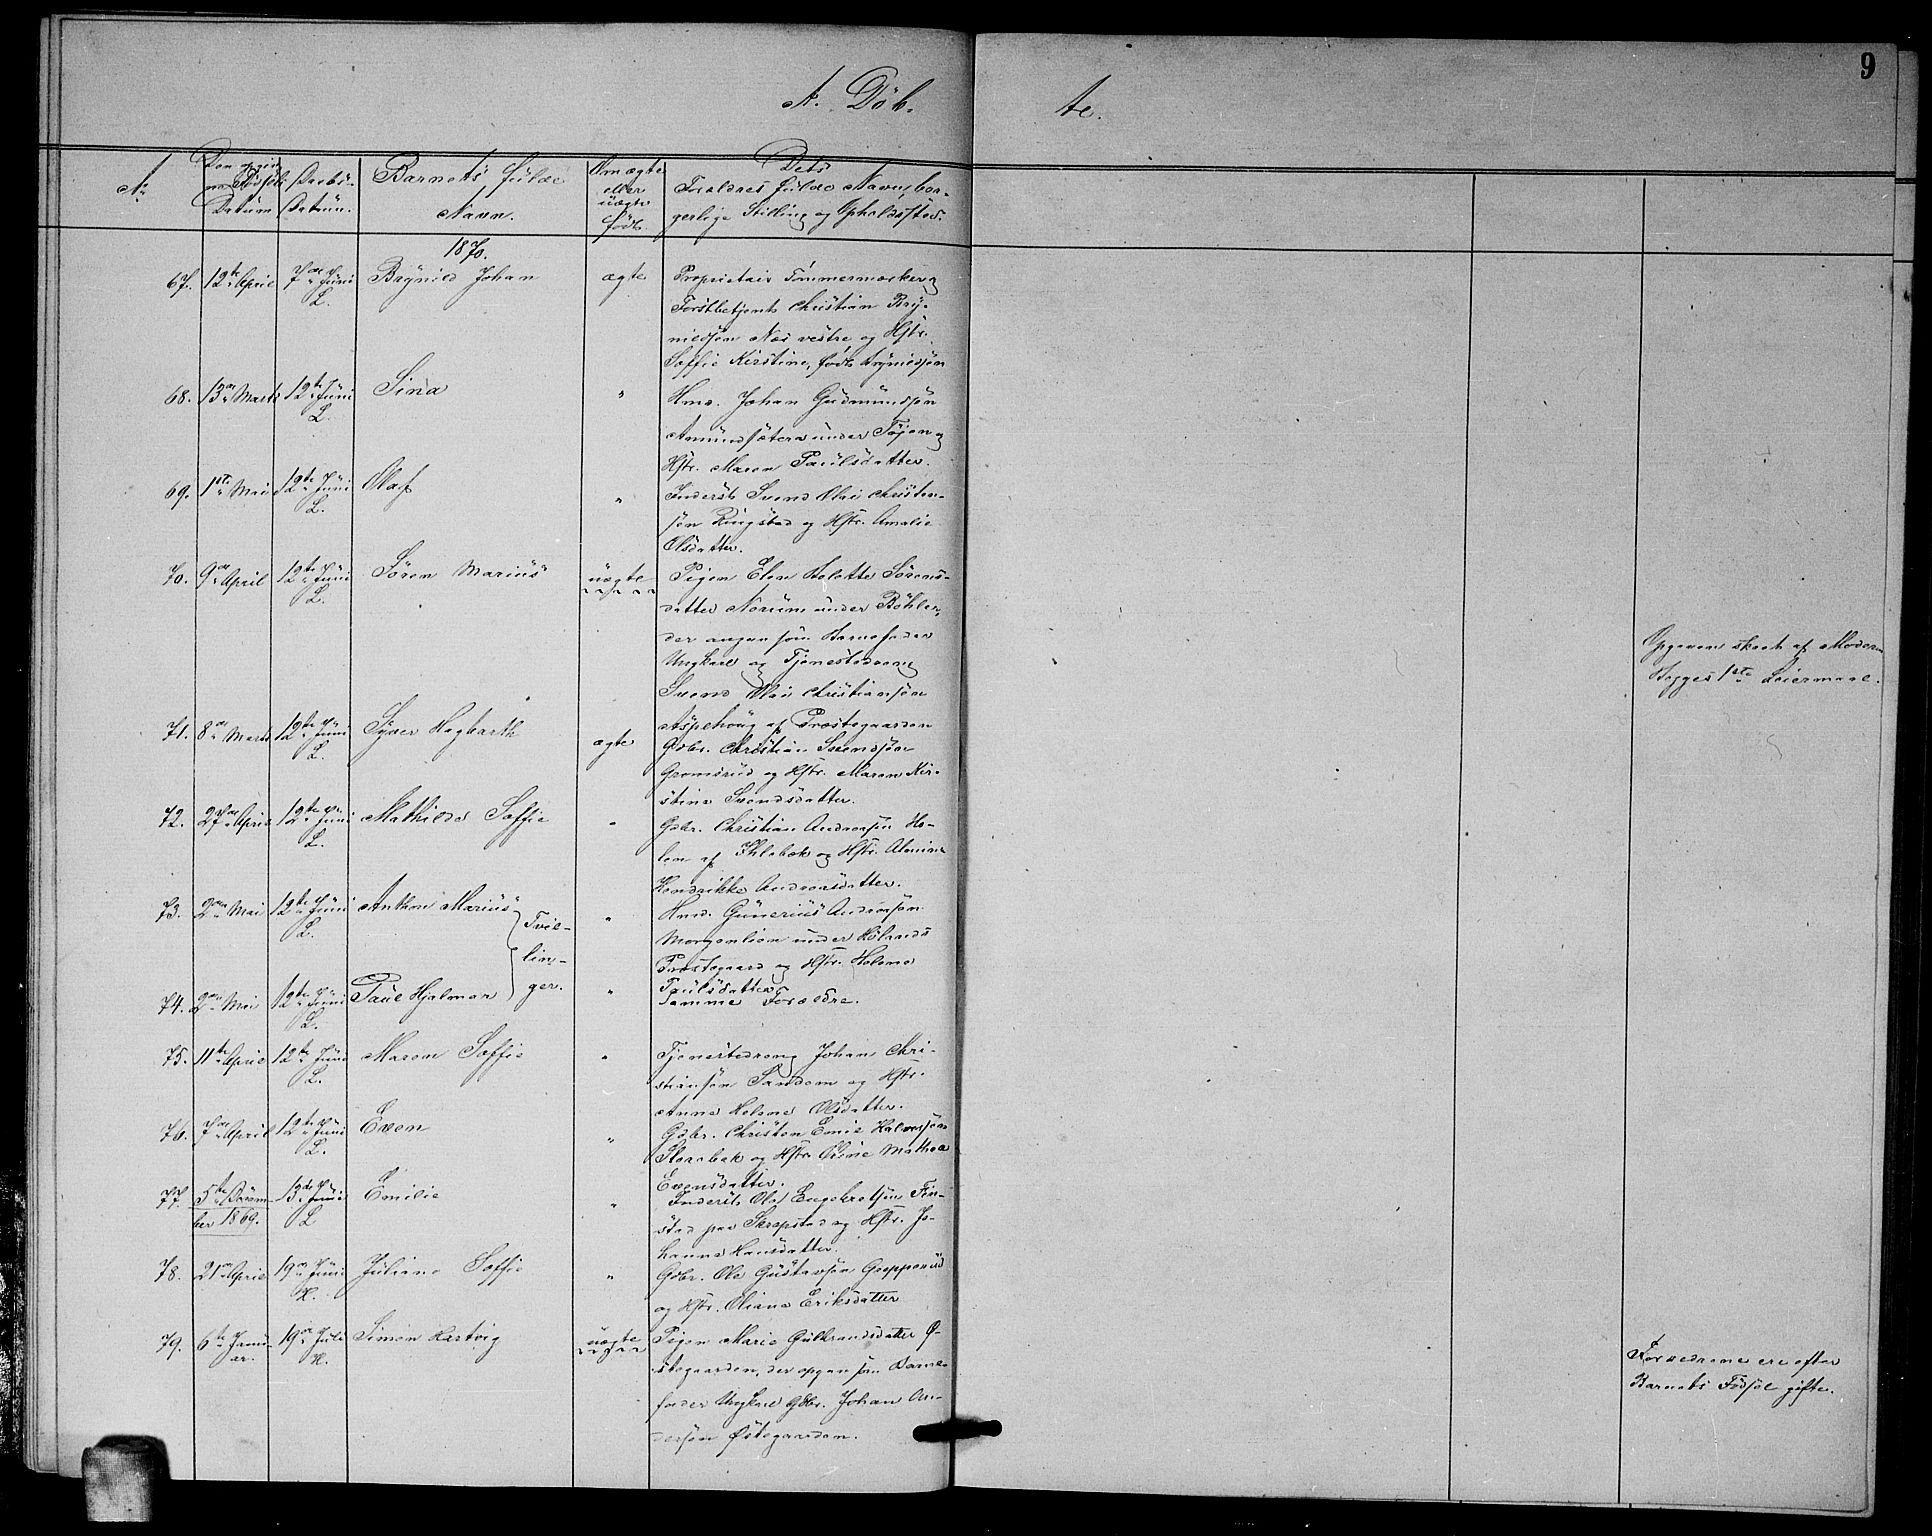 9
A. Døb-
te.
No
Den opgivne Fødsels Datum
Daabs-
Datum.
Barnets fulde
Navn.
Om ægte
eller
uægte
født.
Dets
Forældres fulde Navn, bor-
gerlige Stilling og Opholdssted.
1870.
67. 12te April 7de Juni L. Brynild Johan ægte Proprietair Tømmermærker og
Forstbetjent Christian Bry-
nildsøn Næs vestre og Hstr.
Soffie Kirstine, født Brynildsøn
68. 13de Marts 12te Juni L. Sina " Hmd. Johan Gudmundsøn
Amundsætera under Tøjen og
Hstr. Maren Paulsdatter.
69. 1ste Mai 12te Juni L. Olaf " Inderst Svend Olai Christen-
søn Ringstad og Hstr. Amalie
Olsdatter.
70. 9de April 12te Juni L. Søren Marius uægte Pigen Elen Lolotte Sørens-
datter Norum under Bøhler,
der angav som Barnefader
Ungkarl og Tjenestedreng
Svend Olai Christiansøn
Aspehoug af Præstegaarden
Opgaven skeet af Moderen
Begges 1ste Leiermaal.
71. 8de Marts 12te Juni L. Syver Hagbarth ægte Gdbr. Christian Svendsøn
Gromsrud og Hstr. Maren Kir-
stine Svendsdatter.
72. 27de April 12te Juni L. Mathilde Soffie " Gdbr. Christian Andreasøn Ho-
len af Ihlebæk og Hstr.
Hendrikke Andreasdatter.
73. 2den Mai 12te Juni L. Anthon Marius " Hmd. Gunerius Andreasøn
Morgenlien under Hølands
Præstegaard og Hstr. Helene
Paulsdatter.
Tvil-
lin-
ger.
74. 2den Mai 12te Juni L. Paul Hjalmar " Samme Forældre.
75. 11te April 12te Juni L. Maren Soffie " Tjenestedreng Johan Chri-
stiansøn Sandem og Hstr.
Anne Helene Olsdatter.
76. 7de April 12te Juni L. Even " Gdbr. Christen Emil Halvorsøn
Storebæk og Hstr. Oline Mathea
Evensdatter.
77. 5te Decem-
ber 1869. 13de Juni L Emilie " Inderst Ole Engebretsøn Fin-
stad paa Skrepstad og Hstr. Jo-
hanne Hansdatter.
78. 21de April 19de Juni H. Juliane Soffie " Gdbr. Ole Gustavsøn Grepperud
og Hstr. Oliana Eriksdatter
79. 6te Janu-
ar. 19de Juli H. Simen Hartvig uægte Pigen Marie Gulbrandsdatter Ø-
stegaarden, der opgav som Barne-
fader Ungkarl Gdbr. Johan An-
dersøn Østegaarden.
Forældrene ere efter
Barnets Fødsel gifte.